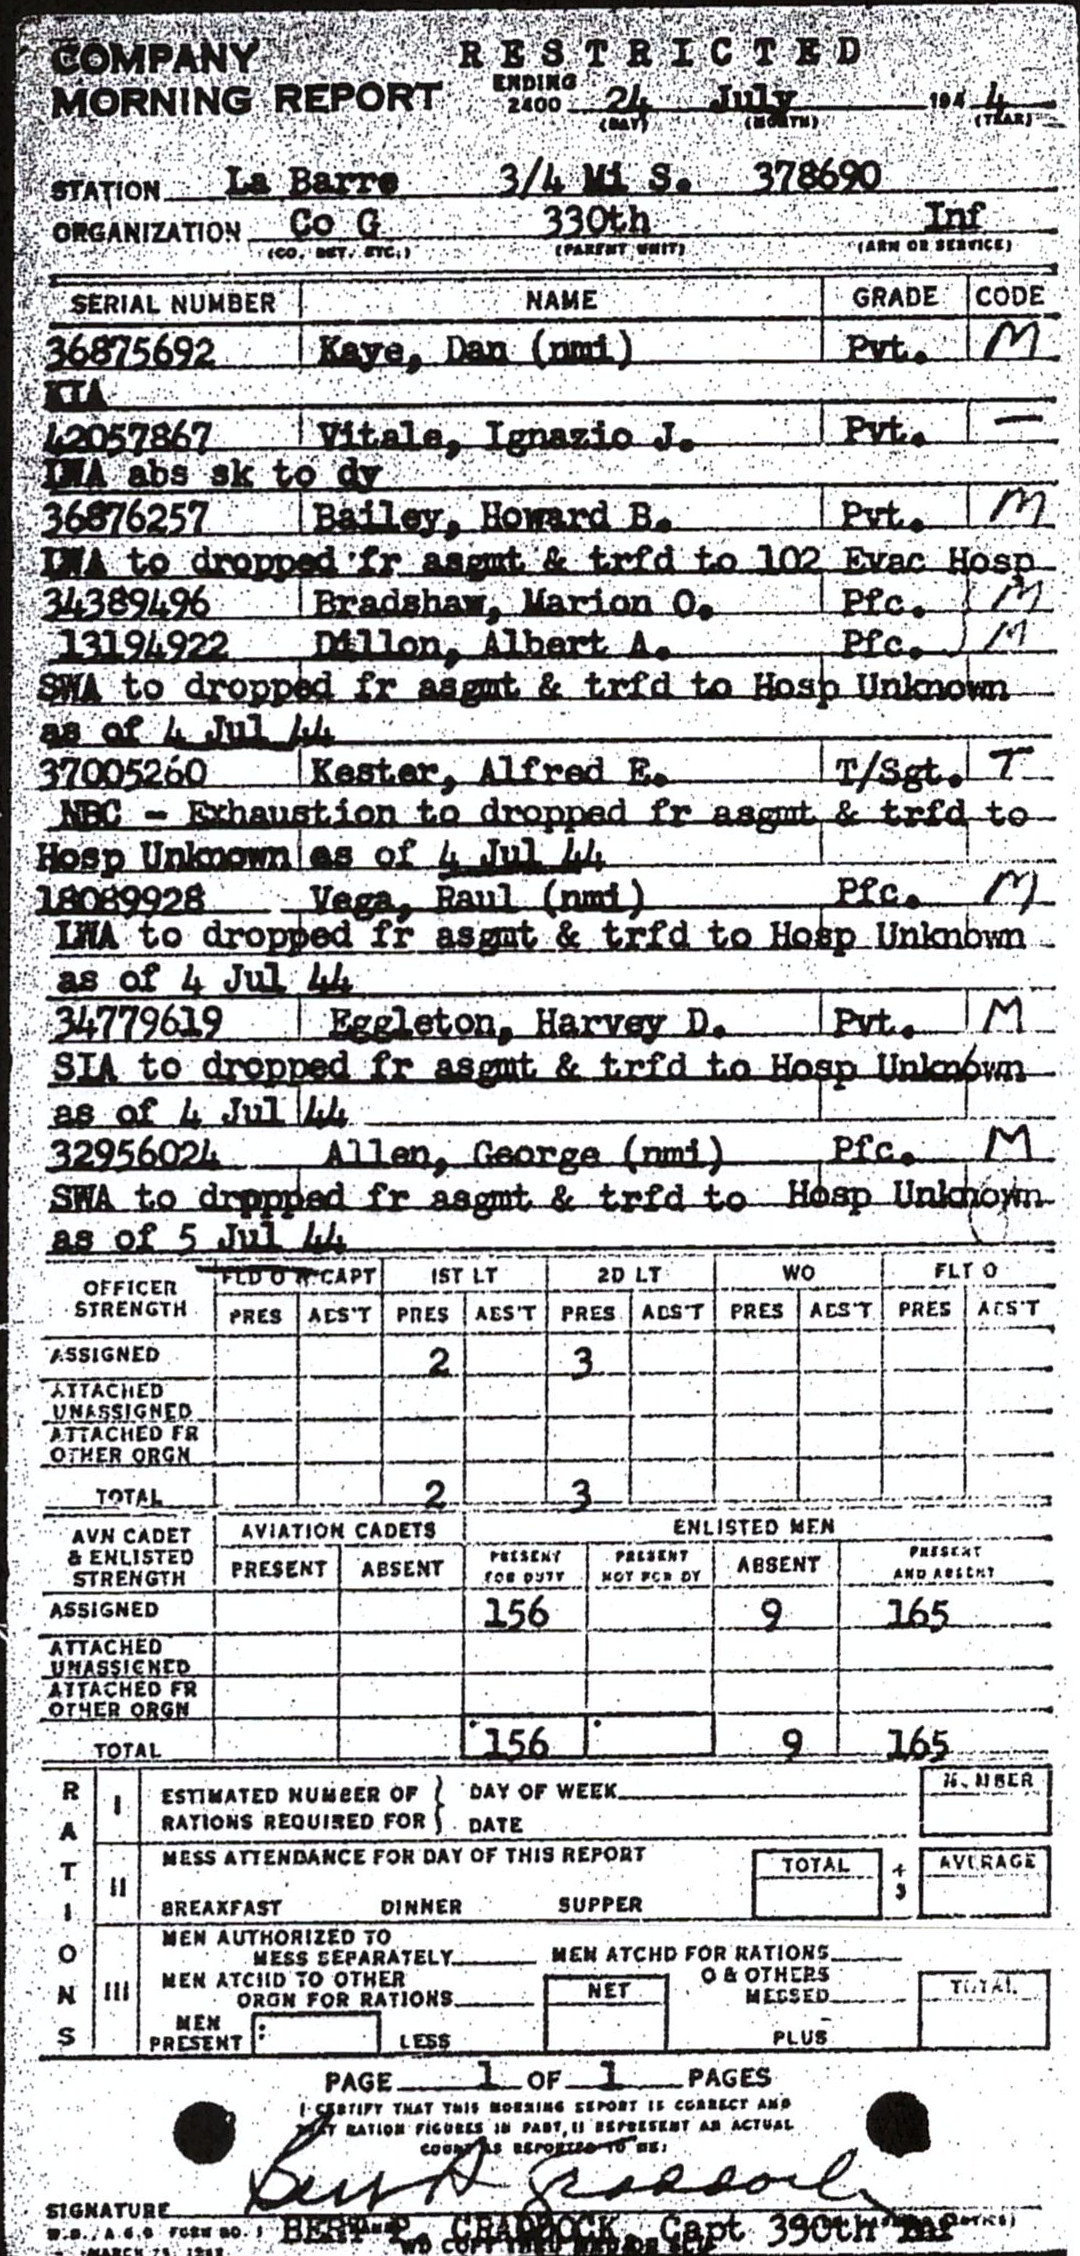 COMPANY RESTRICTED
MORNING REPORT ENDING 2400 24 July 194 4
(DAY) (MONTH) (YEAR)
STATION La Barre 3/4 Mi S. 378690
ORGANIZATION Co G 330th Inf
(CO. DET. ETC.) (PARENT UNIT) (ARM OR SERVICE)
SERIAL NUMBER NAME GRADE CODE
36875692 Kaye, Dan (nmi) Pvt. M
KIA
42057867 Vitale, Ignazio J. Pvt. —
LWA abs sk to dy
36876257 Bailey, Howard B. Pvt. M
LWA to dropped fr asgmt & trfd to 102 Evac Hosp
34389496 Bradshaw, Marion O. Pfc. M
13194922 Dillon, Albert A. Pfc. M
SWA to dropped fr asgmt & trfd to Hosp Unknown
as of 4 Jul 44
37005260 Kester, Alfred E. T/Sgt. T
NBC - Exhaustion to dropped fr asgmt & trfd to
Hosp Unknown as of 4 Jul 44
18089928 Vega, Raul (nmi) Pfc. M
LWA to dropped fr asgmt & trfd to Hosp Unknown
as of 4 Jul 44
34779619 Eggleton, Harvey D. Pvt. M
SIA to dropped fr asgmt & trfd to Hosp Unknown
as of 4 Jul 44
32956024 Allen, George (nmi) Pfc. M
SWA to drppped fr asgmt & trfd to Hosp Unknown
as of 5 Jul 44
OFFICER STRENGTH FLD O CAPT 1ST LT 2D LT WO FLT O
PRES ABS'T PRES ABS'T PRES ABS'T PRES ABS'T PRES ABS'T
ASSIGNED 2 3
ATTACHED UNASSIGNED
ATTACHED FR OTHER ORGN
TOTAL 2 3
AVN CADET & ENLISTED STRENGTH AVIATION CADETS ENLISTED MEN
PRESENT ABSENT PRESENT FOR DUTY PRESENT NOT FOR DY ABSENT PRESENT AND ABSENT
ASSIGNED 156 9 165
ATTACHED UNASSIGNED
ATTACHED FR OTHER ORGN
TOTAL 156 9 165
RATIONS
I ESTIMATED NUMBER OF DAY OF WEEK NUMBER
RATIONS REQUIRED FOR DATE
II MESS ATTENDANCE FOR DAY OF THIS REPORT TOTAL ÷ 3 AVERAGE
BREAKFAST DINNER SUPPER
III MEN AUTHORIZED TO
MESS SEPARATELY MEN ATCHD FOR RATIONS
MEN ATCHD TO OTHER NET O & OTHERS TOTAL
ORGN FOR RATIONS MESSED
MEN PRESENT LESS PLUS
PAGE 1 OF 1 PAGES
I CERTIFY THAT THIS MORNING REPORT IS CORRECT AND
THAT RATION FIGURES IN PART, II REPRESENT AN ACTUAL
COUNT AS REPORTED TO ME:
SIGNATURE
BERT P. CRADDOCK, Capt 390th Inf
W.D., A.G.O FORM NO. 1
MARCH